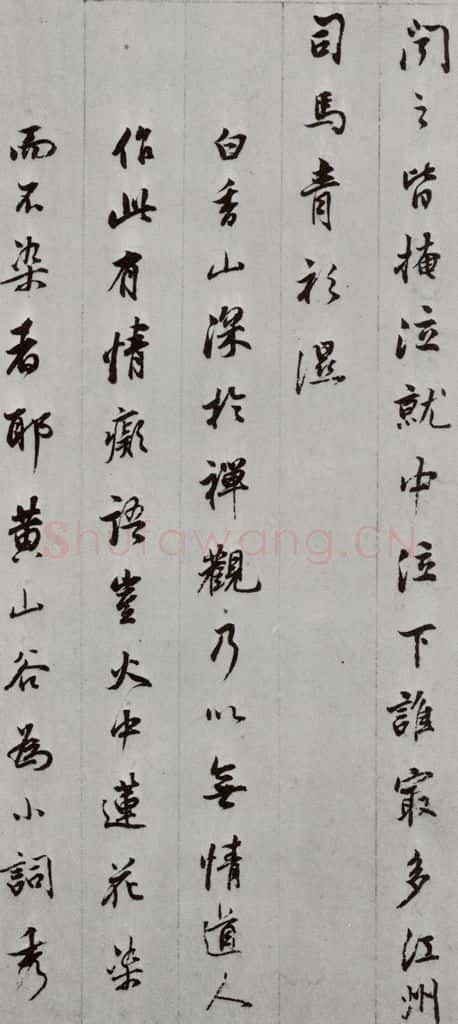 闻之皆掩泣就中泣下誰㝡多江州
司馬青衫濕
白香山深於禪觀乃以無情道人
作此有情癡語豈火中蓮花染
而不染者耶黄山谷為小詞秀
Shufawang.CN